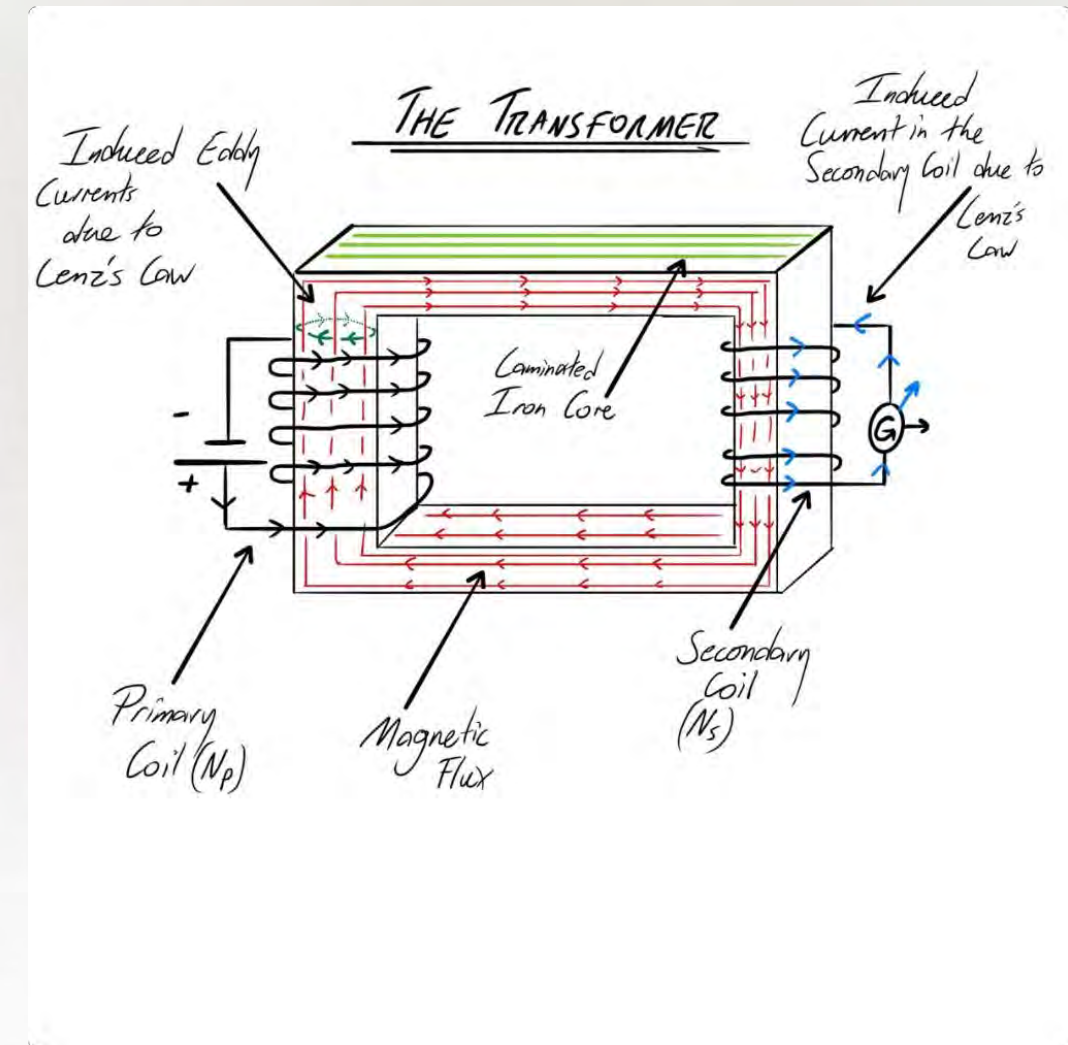 THE TRANSFORMER
Induced Eddy
Currents
due to
Lenz's Law
Induced
Current in the
Secondary Coil due to
Lenz's
Law
Laminated
Iron Core
-
+
G
Primary
Coil (Np)
Magnetic
Flux
Secondary
Coil
(Ns)